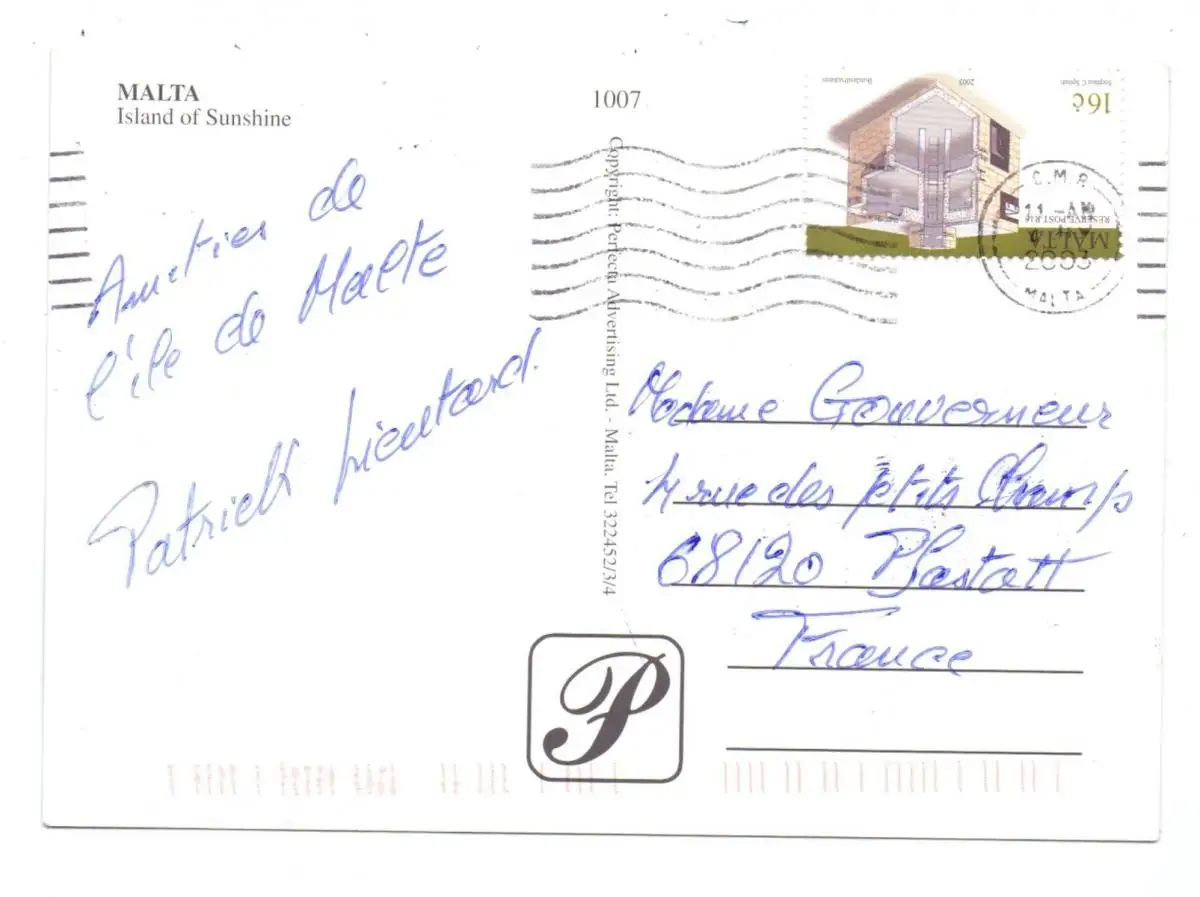 MALTA
Island of Sunshine
1007
Amitiés de
l'île de Malte
Patrick Lientard.
Copyright: Perfecta Advertising Ltd. - Malta. Tel 322452/3/4
16c
2003
RESERVE POST R16
MALTA
C.M.R.
11 - AM
2003
MALTA
Madame Gouverneur
4 rue des petits Champs
68120 Pfastatt
France
P